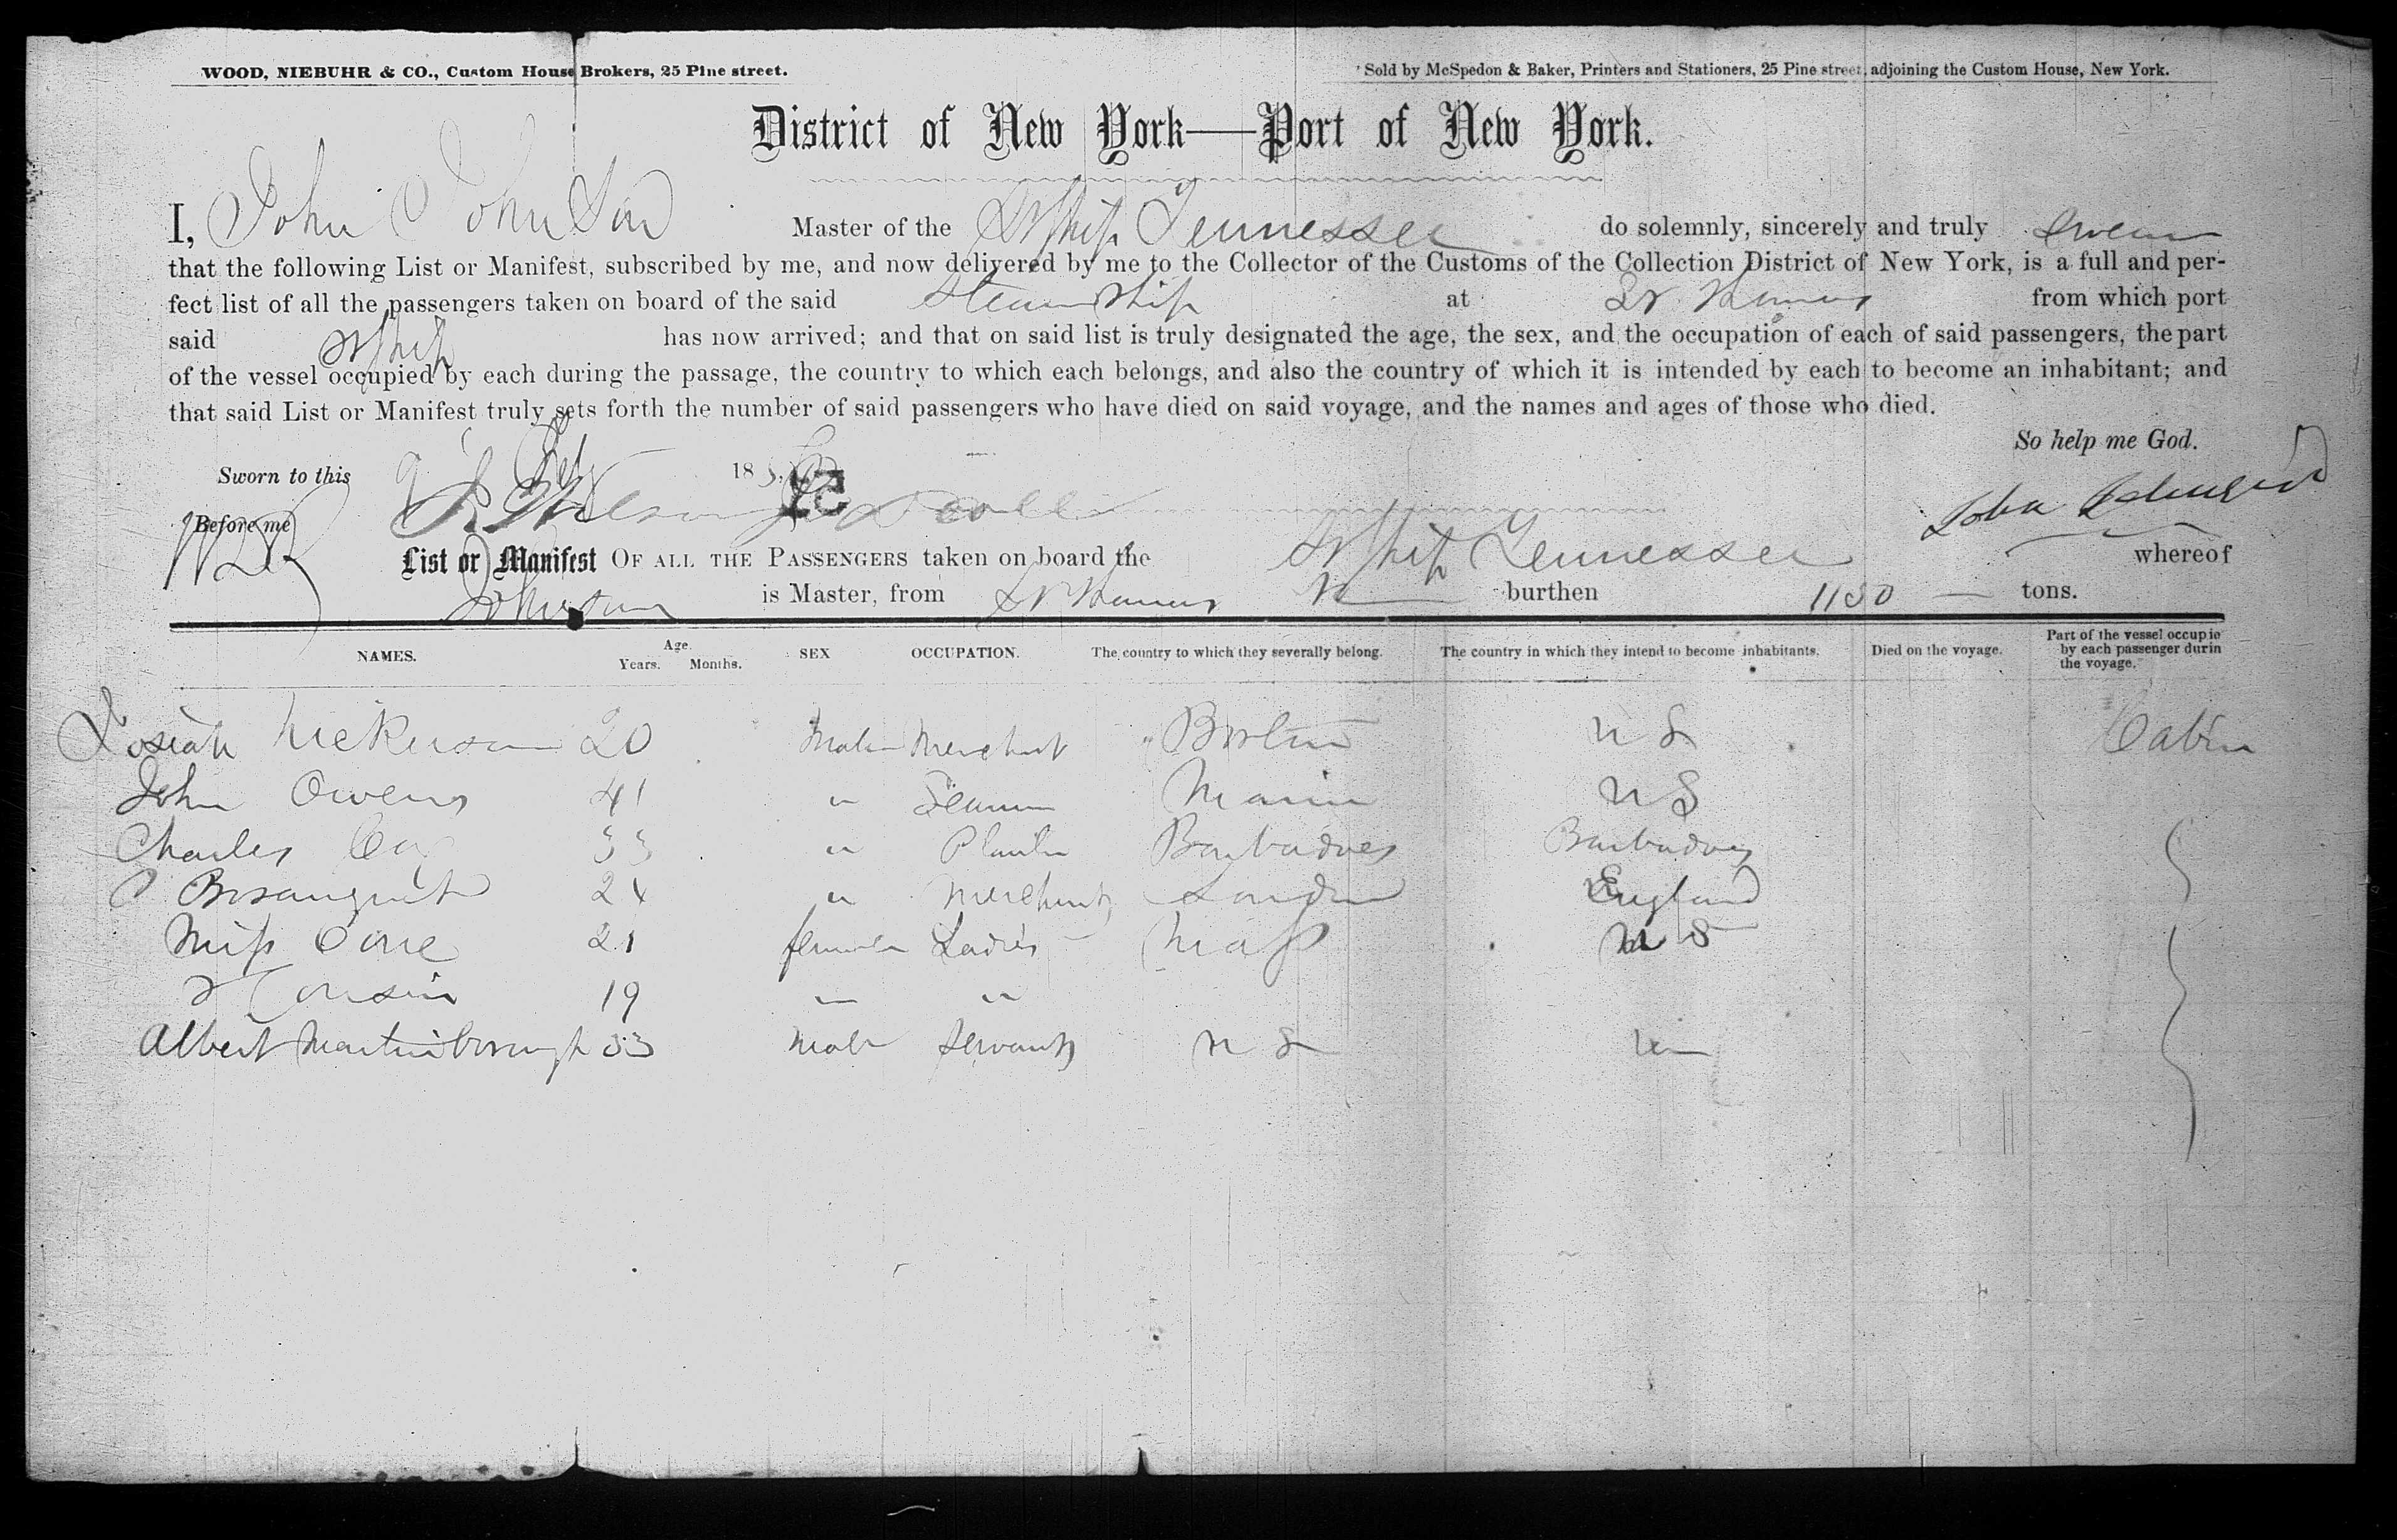 WOOD, NIEBUHR & CO., Custom House Brokers, 25 Pine street.
Sold by McSpedon & Baker, Printers and Stationers, 25 Pine street, adjoining the Custom House, New York.
District of New York—Port of New York.
I, John Johnson Master of the StShip Tennessee do solemnly, sincerely and truly swear
that the following List or Manifest, subscribed by me, and now delivered by me to the Collector of the Customs of the Collection District of New York, is a full and per-
fect list of all the passengers taken on board of the said Steam Ship at St Thomas from which port
said StShip has now arrived; and that on said list is truly designated the age, the sex, and the occupation of each of said passengers, the part
of the vessel occupied by each during the passage, the country to which each belongs, and also the country of which it is intended by each to become an inhabitant; and
that said List or Manifest truly sets forth the number of said passengers who have died on said voyage, and the names and ages of those who died.
So help me God.
Sworn to this 9 185
Before me John Johnson
List or Manifest OF ALL THE PASSENGERS taken on board the StShip Tennessee whereof
Johnson is Master, from St Thomas burthen 1150 tons.
NAMES. Age. Years. Months. SEX OCCUPATION. The country to which they severally belong. The country in which they intend to become inhabitants. Died on the voyage. Part of the vessel occupie by each passenger durin the voyage.
Josiah Nickerson 20 Male Merchant Boston U S Cabin
John Owens 41 " Seaman Maine U S
Charles 33 " Planter Barbadoes Barbadoes
Bosanquet 24 " Merchant London England
Miss Cone 21 female Ladies Mass U S
& Cousin 19 " "
Albert Martinborough 33 Male Servant U S